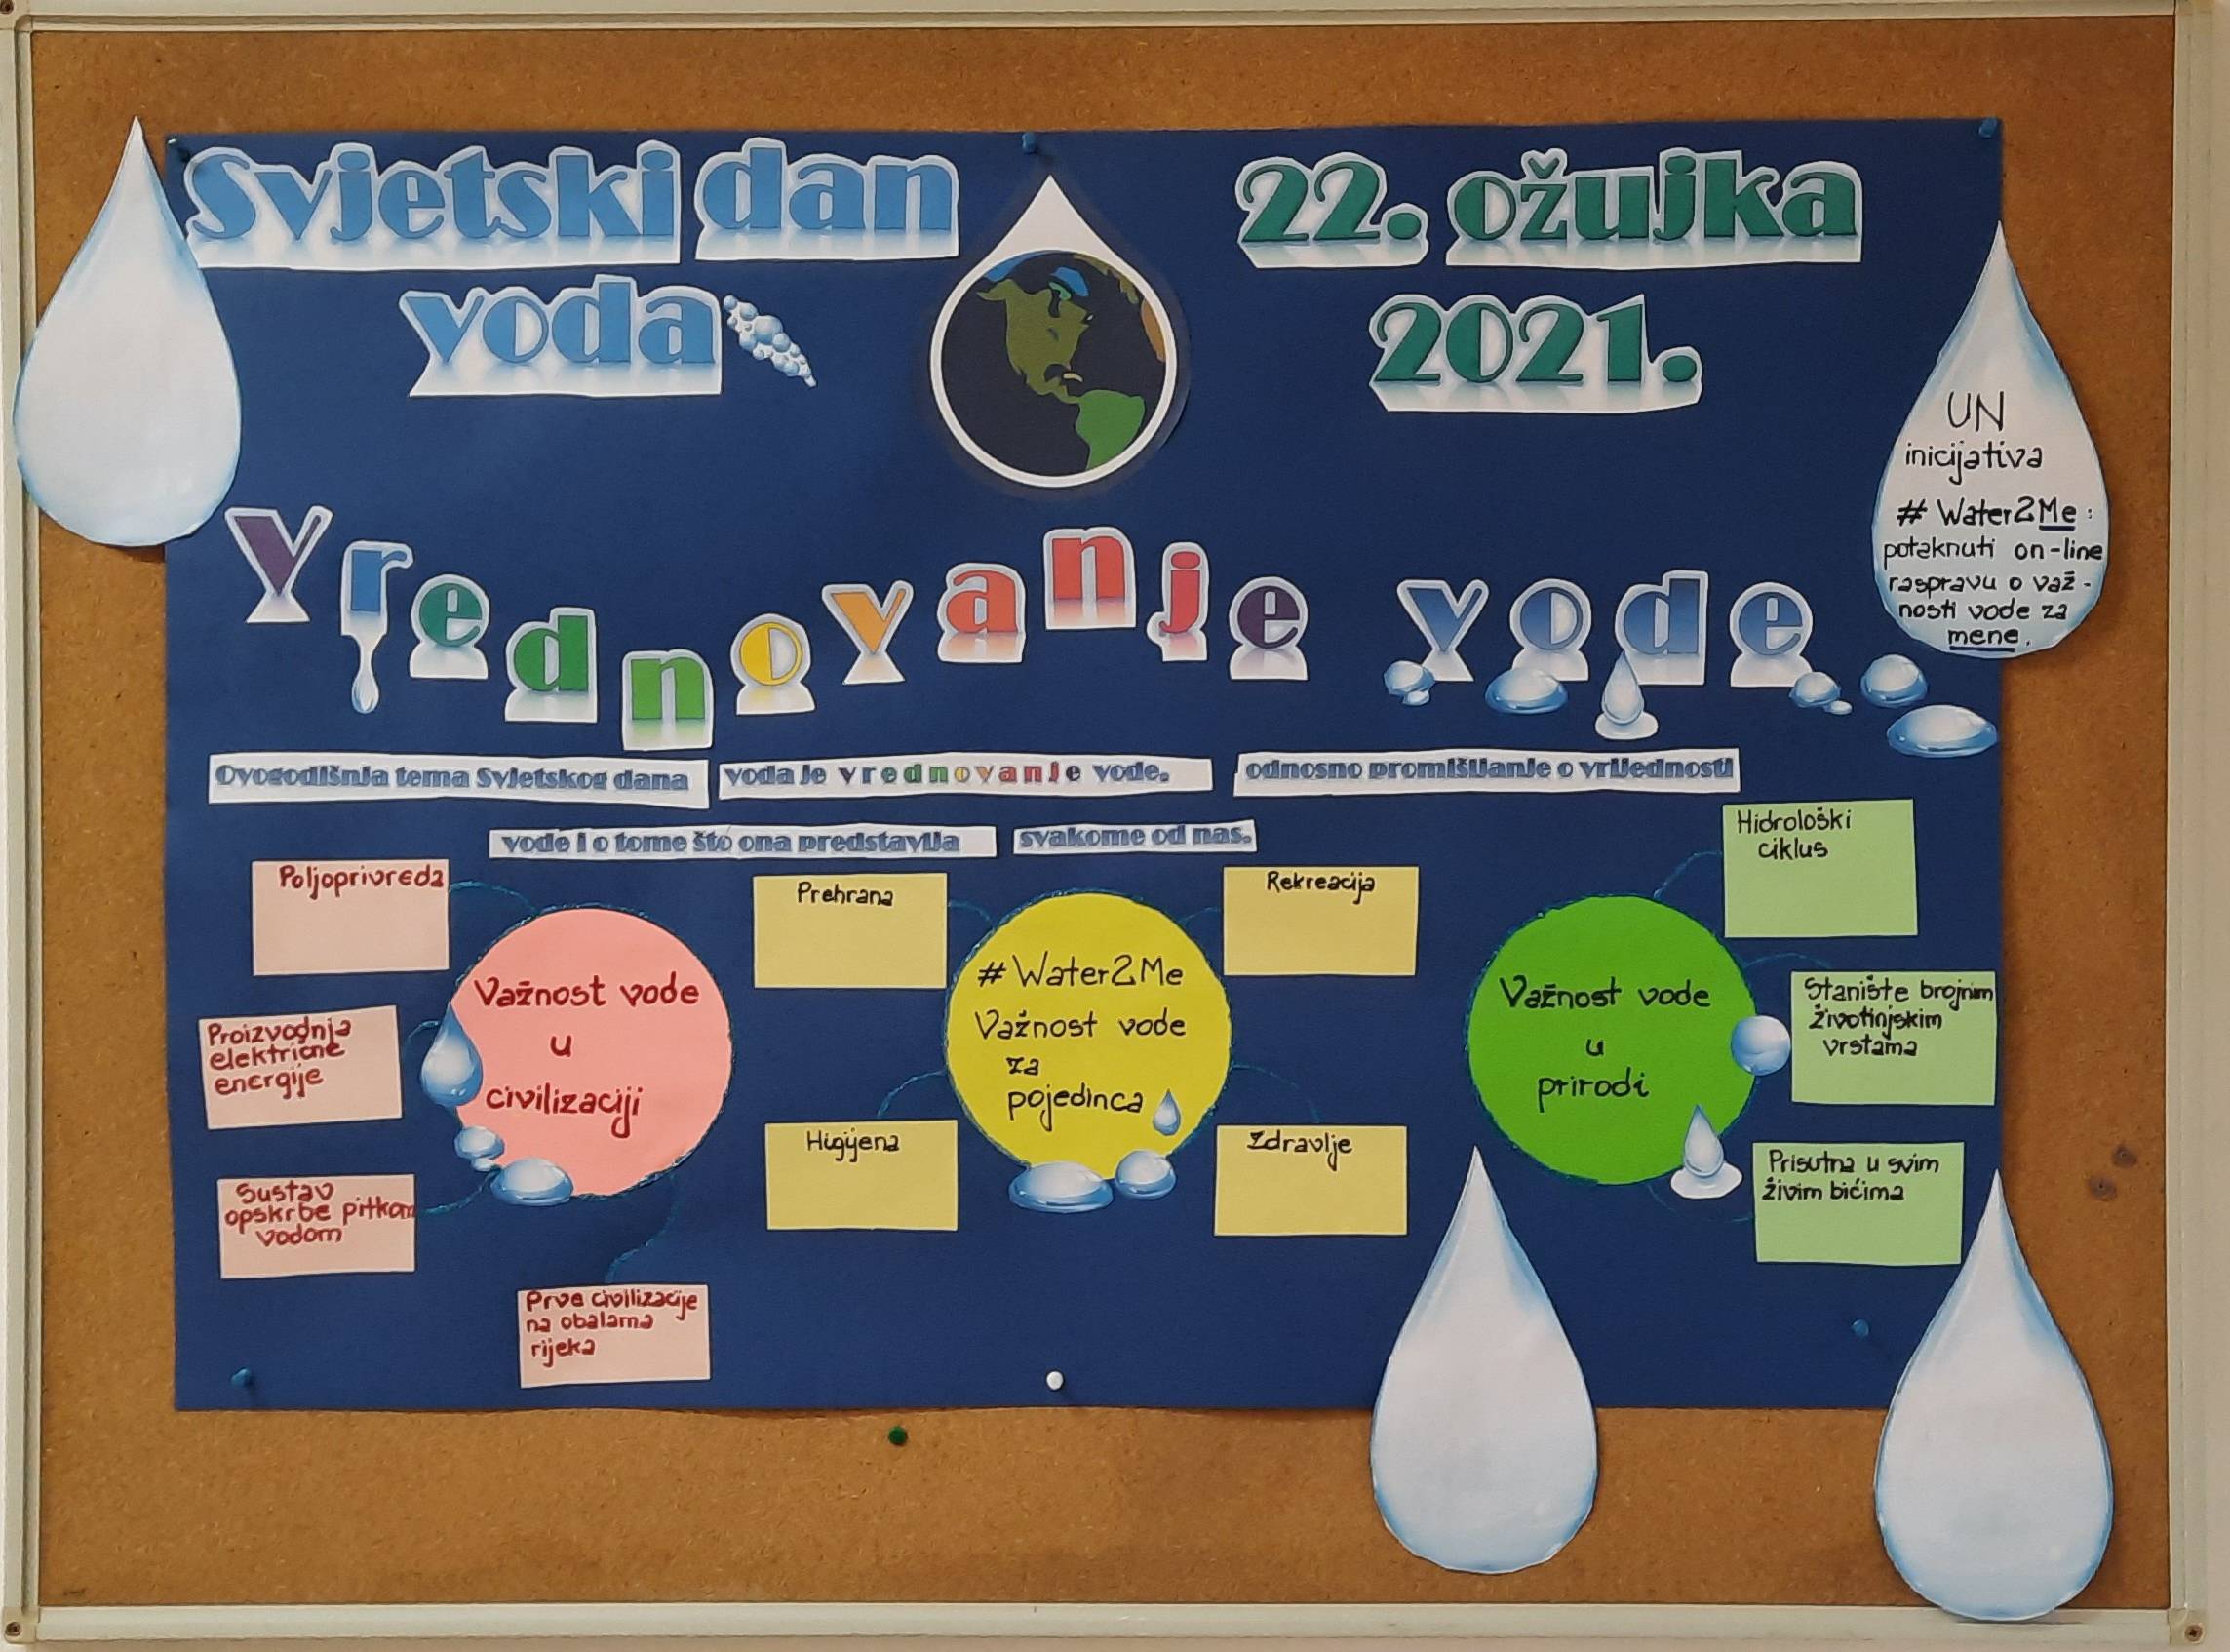 Svjetski dan
voda
22. ožujka
2021.
UN
inicijativa
# Water2Me:
potaknuti on-line
raspravu o važ-
nosti vode za
mene.
Vrednovanje vode
Ovogodišnja tema Svjetskog dana voda je vrednovanje vode, odnosno promišljanje o vrijednosti
vode i o tome što ona predstavlja svakome od nas.
Poljoprivreda
Proizvodnja
električne
energije
Sustav
opskrbe pitkom
vodom
Prve civilizacije
na obalama
rijeka
Važnost vode
u
civilizaciji
Prehrana
Rekreacija
# Water2Me
Važnost vode
za
pojedinca
Higijena
Zdravlje
Važnost vode
u
prirodi
Hidrološki
ciklus
Stanište brojnim
životinjskim
vrstama
Prisutna u svim
živim bićima